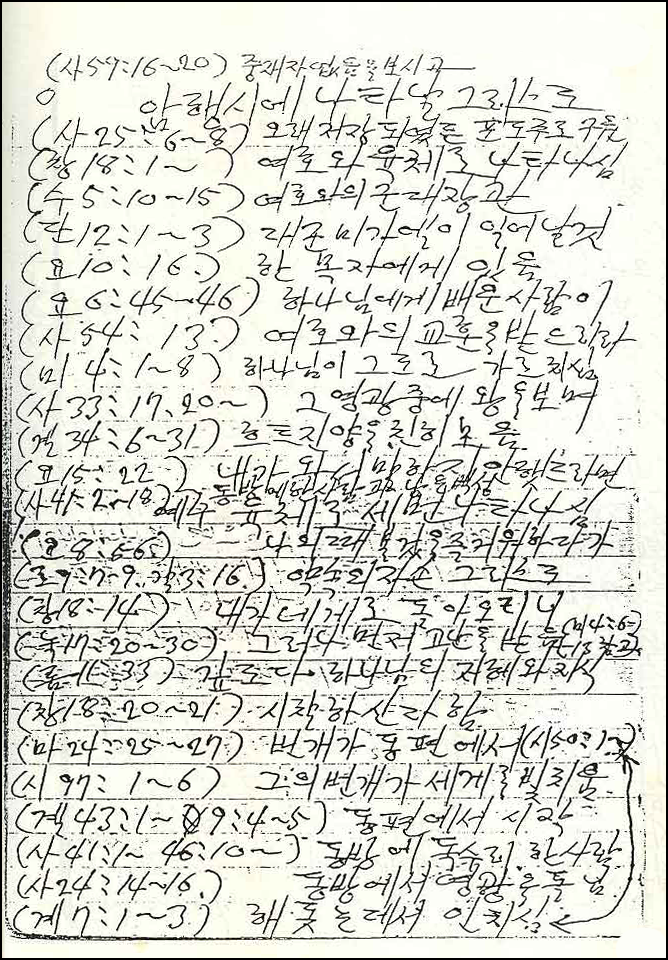 (사59:16~20) 중재자 없음을 보시고
암행시에 나타날 그리스도
(사25:6~8) 오래 저장되였든 포도주로 구원
(창18:1~ ) 여호와 육체로 나타나심
(수5:10~15) 여호와의 군대장관
(단12:1~3) 대군 미가엘이 일어날것
(요10:16.) 한 목자에게 있음
(요6:45~46) 하나님에게 배운사람이
(사54:13.) 여호와의 교훈을 받으리라
(미4:1~8) 하나님이 그도로 가르치심
(사33:17.20~) 그 영광중에 왕을보며
(겔34:6~31) 흐트지양을친히 모음
(요15:22 ) 내가 와서 말하지 아행드라면
(사41:2~18) 동방에한사람
예수 육체로 세번 나타나심
(요8:56.) 나의때 볼것을즐거워하다가
(로9:7-9.갈3:16.) 약속의자손 그리스도
(창18:14) 내가 네게로 돌아오리니
(눅17:20~30) 그러나 먼저 고난을받음(미4:6-
참고)
(롬11:33) 깊도다. 하나님의 지혜와지식
(창18:20~21.) 시작하신다함.
(마24:25~27) 번개가 동편에서(시50:1~
(시97:1~6) 그의번개가 세계를빛치음.
(겔43:1~ 9:4~5) 동편에서 시작
(사41:1~ 46:10~) 동방에 독수리 한사람
(사24:14~16.) 동방에서 영광을돌님
(계7:1~3) 해 돗는데서 인치심